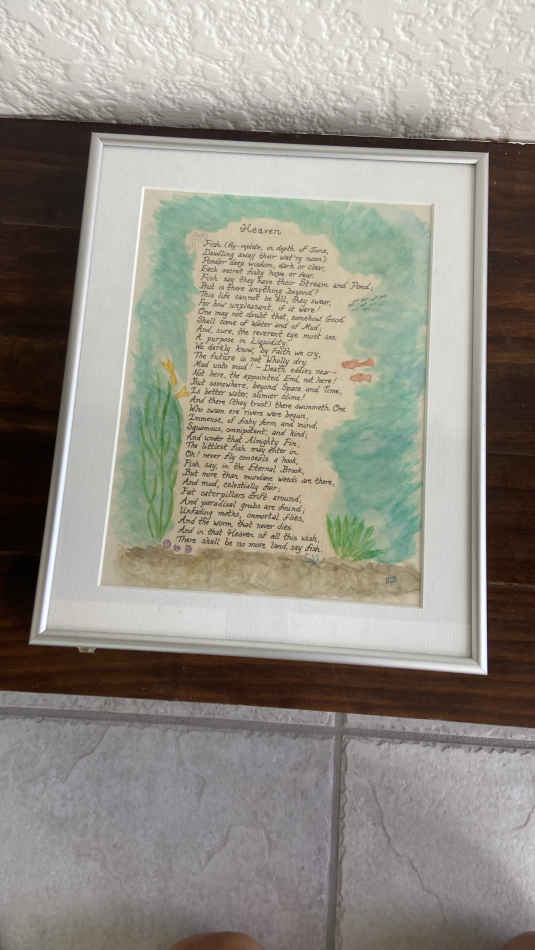 Heaven
Fish (fly-replete, in depth of June,
Dawdling away their wat'ry noon)
Ponder deep wisdom, dark or clear,
Each secret fishy hope or fear.
Fish say, they have their Stream and Pond;
But is there anything Beyond?
This life cannot be All, they swear,
For how unpleasant, if it were!
One may not doubt that, somehow, Good
Shall come of Water and of Mud;
And, sure, the reverent eye must see
A purpose in Liquidity.
We darkly know, by Faith we cry,
The future is not Wholly Dry.
Mud unto mud! - Death eddies near -
Not here the appointed End, not here!
But somewhere, beyond Space and Time,
Is better water, slimier slime!
And there (they trust) there swimmeth One
Who swam ere rivers were begun,
Immense, of fishy form and mind,
Squamous, omnipotent, and kind;
And under that Almighty Fin,
The littlest fish may enter in.
Oh! never fly conceals a hook,
Fish say, in the Eternal Brook,
But more than mundane weeds are there,
And mud, celestially fair;
Fat caterpillars drift around,
And paradisal grubs are found;
Unfading moths, immortal flies,
And the worm that never dies.
And in that Heaven of all this wish,
There shall be no more land, say fish.